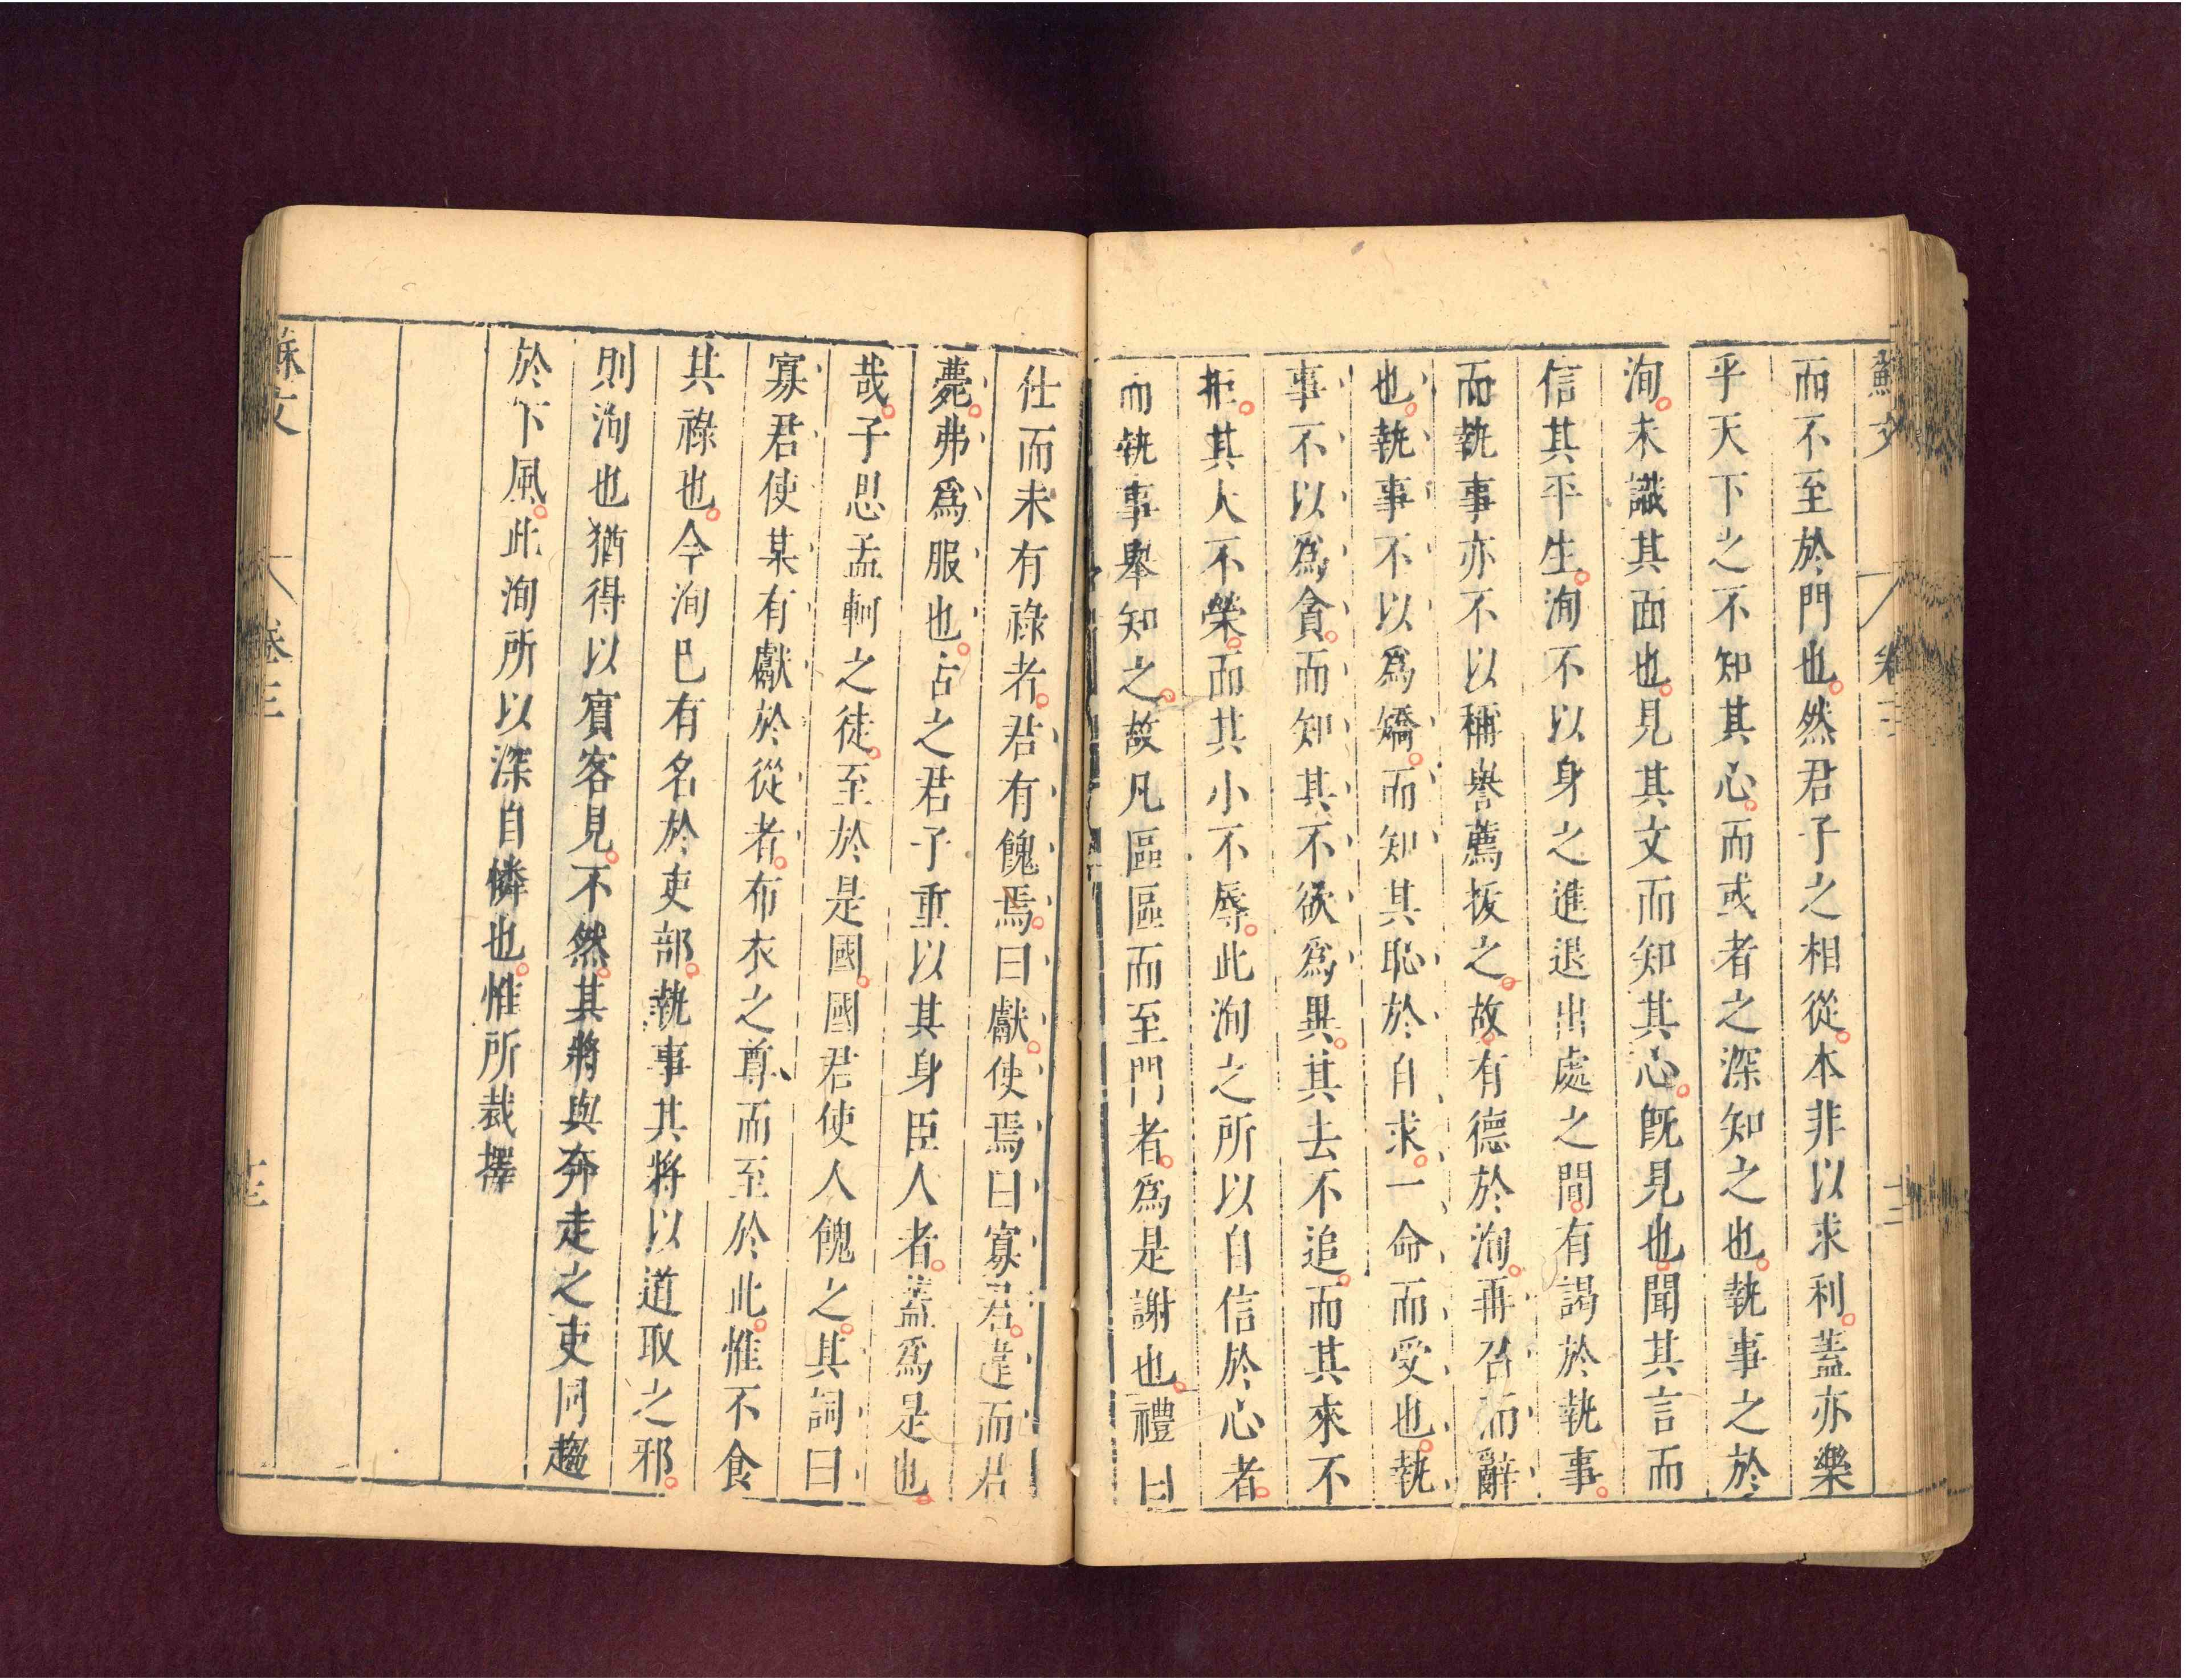 蘇文 卷三
而不至於門也。然君子之相從。本非以求利。蓋亦樂
乎天下之不知其心。而或者之深知之也。執事之於
洵。未識其面也。見其文而知其心。旣見也。聞其言而
信其平生。洵不以身之進退出處之間。有謁於執事。
而執事亦不以稱譽薦拔之。故有德於洵。再召而辭
也。執事不以爲矯。而知其恥於自求。一命而受也。執
事不以爲貪。而知其不欲爲異。其去不追。而其來不
拒。其大不榮。而其小不辱。此洵之所以自信於心者。
而執事舉知之。故凡區區而至門者。爲是謝也。禮曰
仕而未有祿者。君有餽焉。曰獻。使焉曰寡君。違而君
薨。弗爲服也。古之君子重以其身臣人者。蓋爲是也
哉。子思孟軻之徒。至於是國。國君使人餽之。其詞曰
寡君使某有獻於從者。布衣之尊、而至於此。惟不食
其祿也。今洵已有名於吏部。執事其將以道取之邪。
則洵也猶得以賓客見。不然。其將與奔走之吏同趨
於下風。此洵所以深自憐也。惟所裁擇
蘇文 卷三